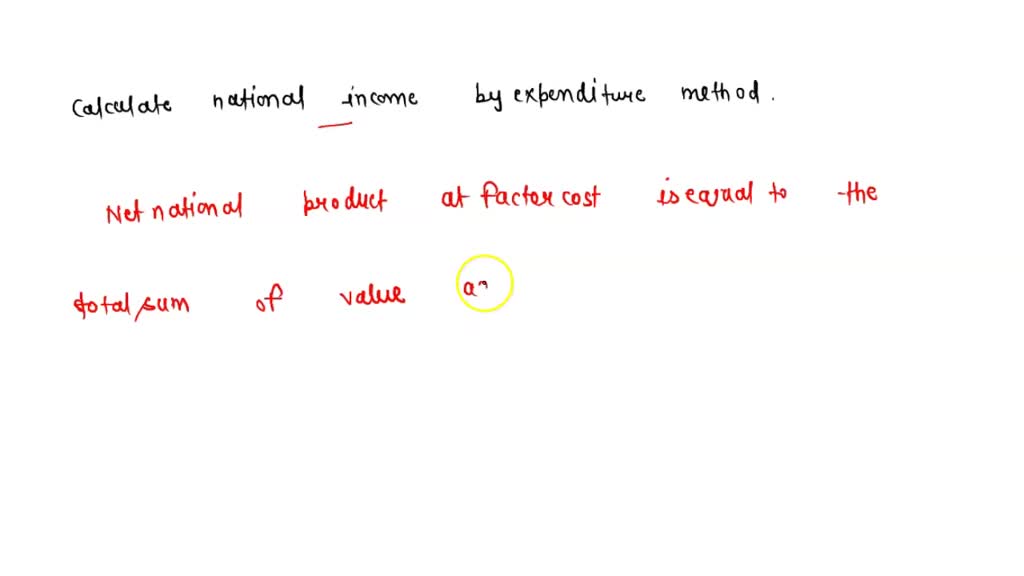 Calculate national income by expenditure method.
Net national product at factor cost is equal to the
total sum of value